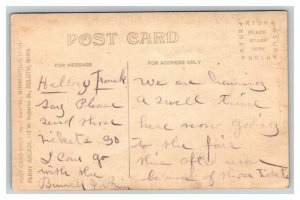 POST CARD
FOR MESSAGE
FOR ADDRESS ONLY
PLACE
STAMP
HERE
Hellow Frank
Say Please
send those
tickets so
I can go
with the
Bunch &
We are having
a swell time
here now going
to the fair
this afternoon
because of those tickets